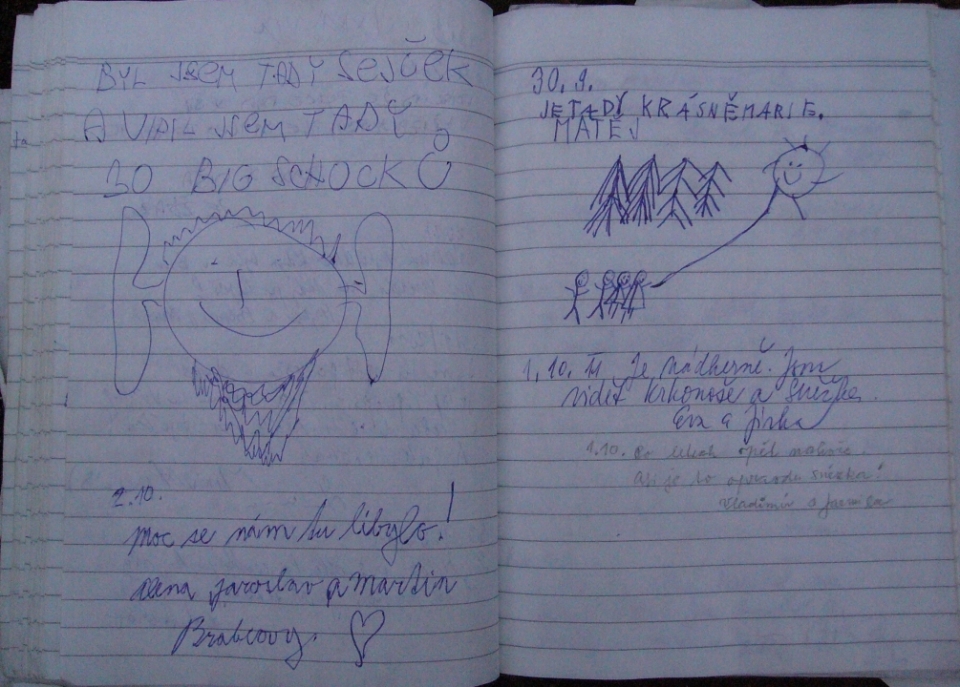 BYL JSEM TADY SEJČEK
A VIDIL JSEM TADY
30 BIG SCHOCKŮ
2.10.
moc se nám tu líbylo!
Jaroslav a Martin
Brabcovy.
30.9.
JE TADY KRÁSNĚ MARIE.
MATĚJ
1.10. 11 Je nádherně. Jsou
vidět Krkonoše a Sněžka.
Eva a Jirka
1.10. Po letech opět
Asi je to opravdu Sněžka!
Vladimír a